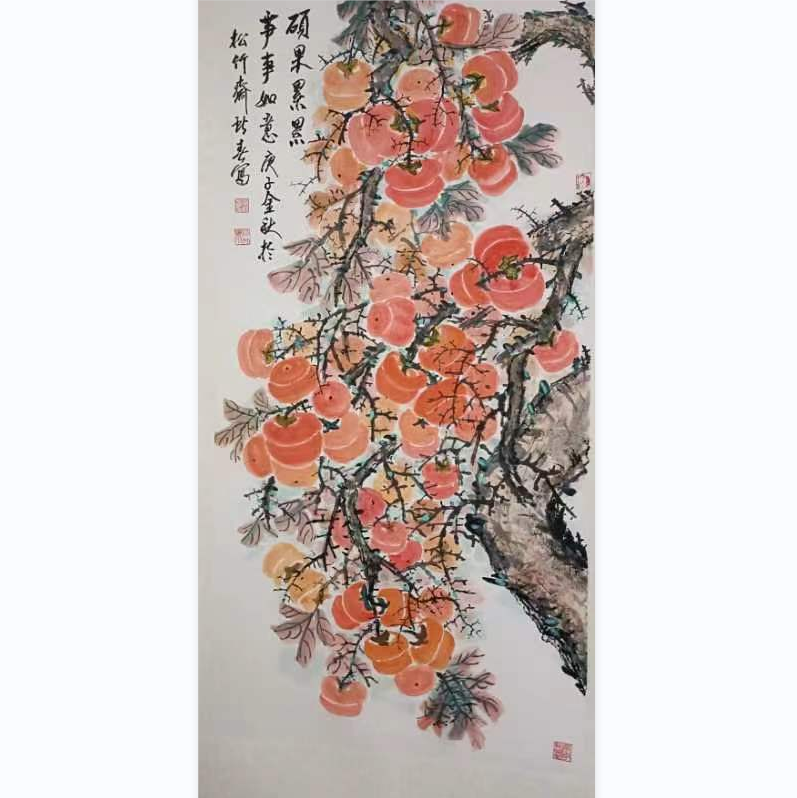 硕果累累
事事如意 庚子金秋於
松竹斋 春写